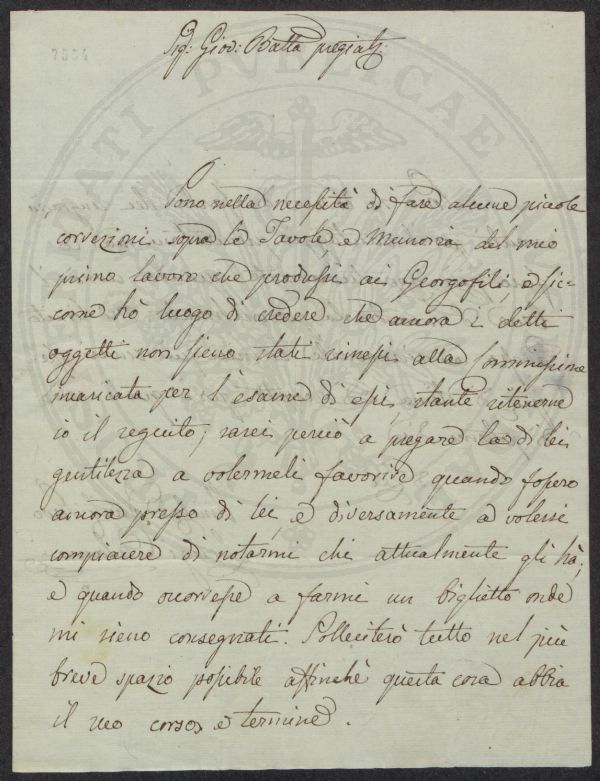 7534
Sig: Giov: Batta pregiat:
Sono nella necessità di fare alcune piccole
correzioni sopra le Tavole, e Memoria del mio
primo lavoro che produssi ai Georgofili, e sic-
come hò luogo di credere che ancora i detti
oggetti non sieno stati rimessi alla Commissione
incaricata per l'esame di essi, stante ritenerne
io il seguito; sarei perciò a pregare la di lei
gentilezza a volermeli favorire quando fossero
ancora presso di lei, e diversamente a volersi
compiacere di notarmi chi attualmente gli hà,
e quando occorresse a farmi un biglietto onde
mi sieno consegnati. Solleciterò tutto nel più
breve spazio possibile affinchè questa cosa abbia
il suo corso, e termine.